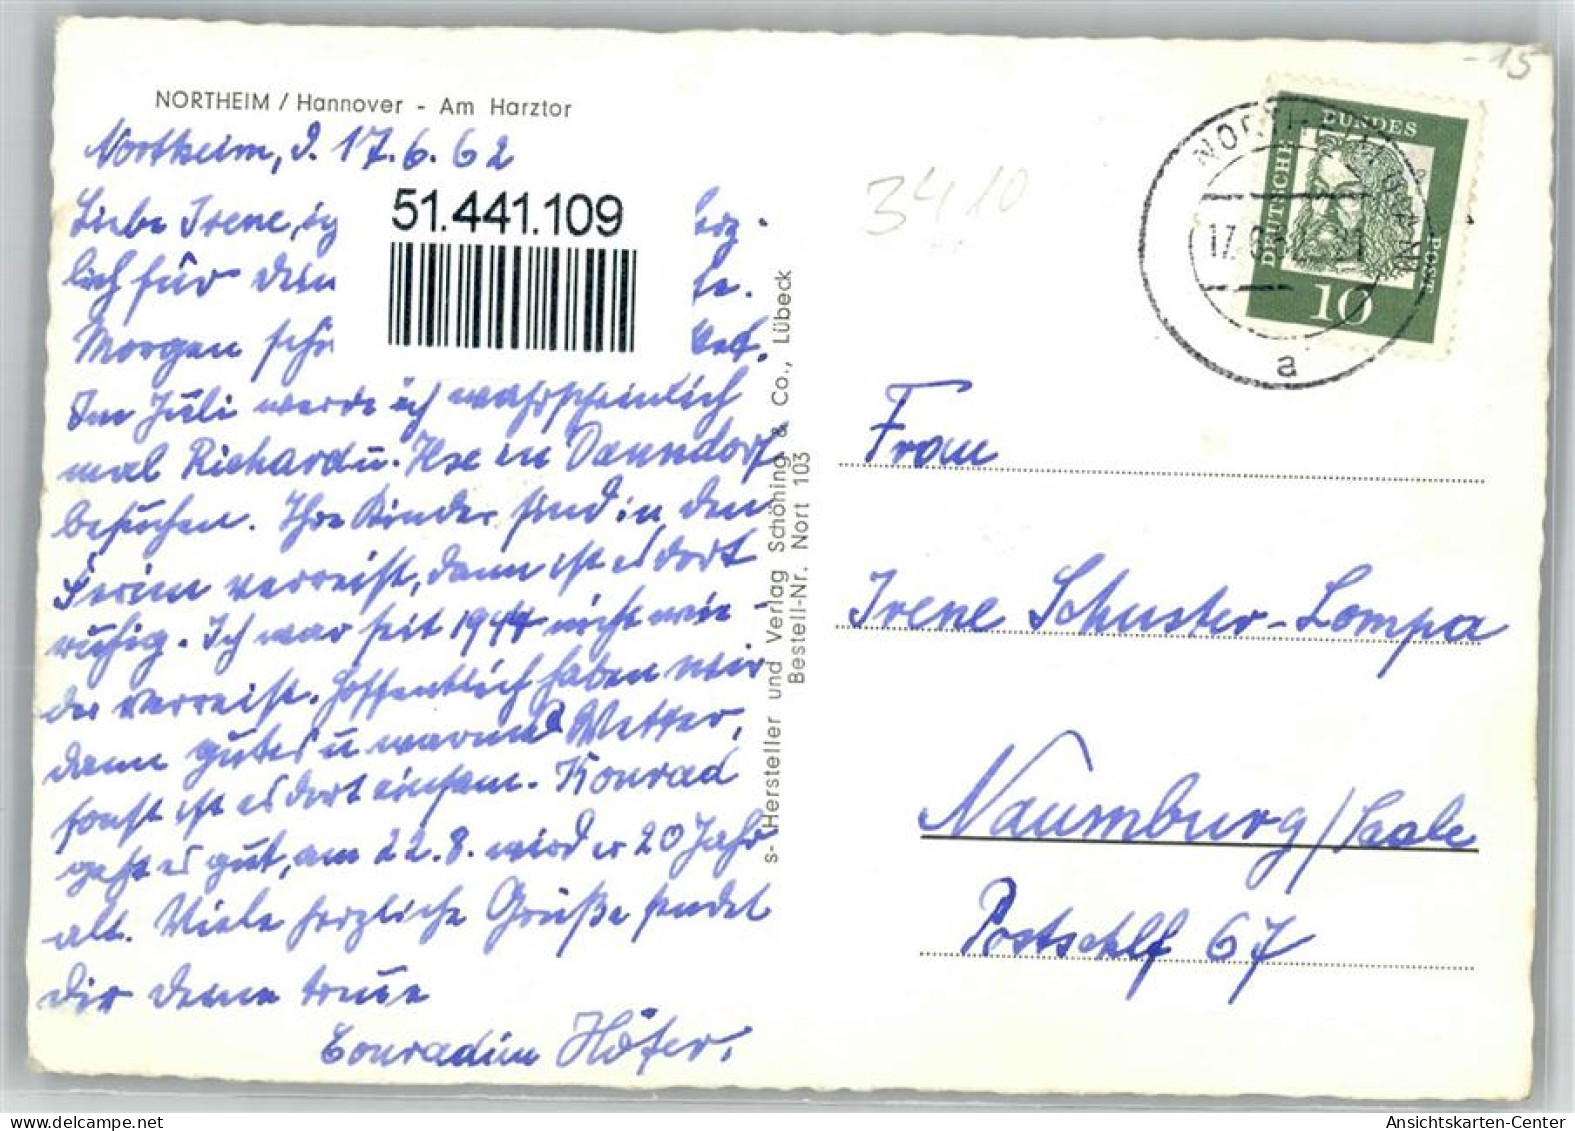 NORTHEIM / Hannover - Am Harztor
Northeim, d. 17.6.62
51.441.109
Liebe Irene, ich herz-
lich für dein
Morgen
Im Juli werde ich wahrscheinlich
mal Richard u. Ilse in Danndorf
besuchen. Ihre Kinder sind in den
Ferien verreist, dann ist es dort
ruhig. Ich war seit 1944 nicht wie-
der verreist. Hoffentlich haben wir
dann gutes u warmes Wetter,
sonst ist es dort einsam. Konrad
geht es gut, am 22.8. wird er 20 Jahr
alt. Viele herzliche Grüße sendet
dir deine treue
Conradine Höfer.
s- Hersteller und Verlag Schöning & Co., Lübeck
Bestell-Nr. Nort 103
3410
-15
DEUTSCHE BUNDES POST
10
NORTHEIM (HANN)
17.6.62-21
a
Frau
Irene Schuster-Lompa
Naumburg/Saale
Postschlf 67
Ansichtskarten-Center